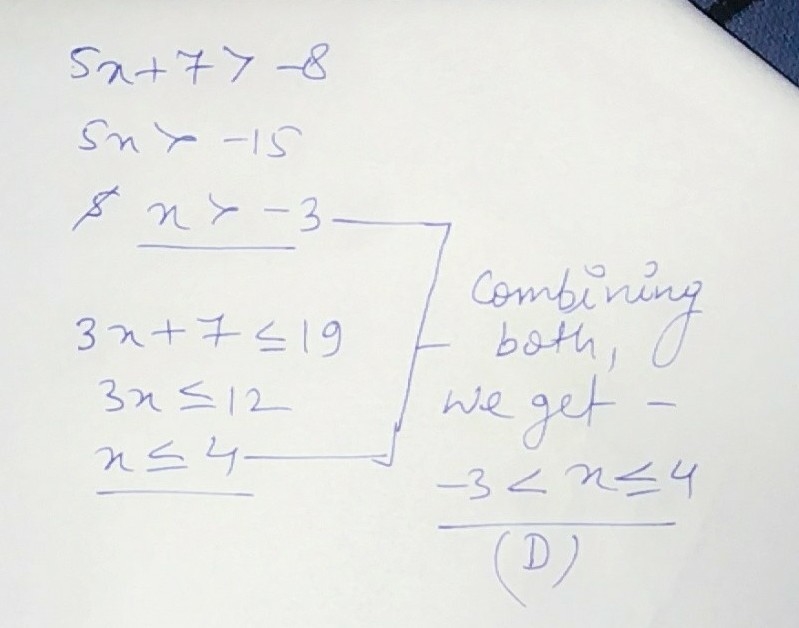 5x+7 > -8
5x > -15
x > -3
3x+7 ≤ 19
3x ≤ 12
x ≤ 4
Combining
both,
we get -
-3 < x ≤ 4
(D)